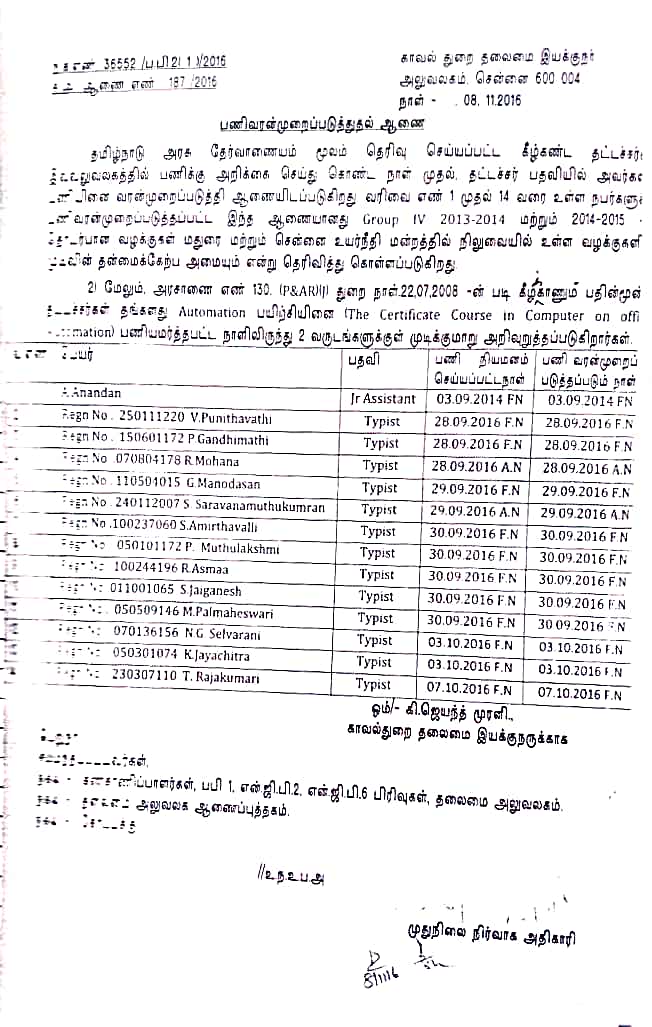 36552 /ப.பி2(1)/2016
ஆணை எண் 187 /2016
காவல் துறை தலைமை இயக்குநர்
அலுவலகம், சென்னை 600 004
நாள் - . 08.11.2016
பணிவரன்முறைப்படுத்துதல் ஆணை
தமிழ்நாடு அரசு தேர்வாணையம் மூலம் தெரிவு செய்யப்பட்ட கீழ்கண்ட தட்டச்சர்
பணிக்கு அறிக்கை செய்து கொண்ட நாள் முதல், தட்டச்சர் பதவியில் அவர்கள
வரன்முறைப்படுத்தி ஆணையிடப்படுகிறது. வரிசை எண் 1 முதல் 14 வரை உள்ள நபர்களு
இந்த ஆணையானது Group IV 2013-2014 மற்றும் 2014-2015 -
வழக்குகள் மதுரை மற்றும் சென்னை உயர்நீதி மன்றத்தில் நிலுவையில் உள்ள வழக்குகளி
தன்மைக்கேற்ப அமையும் என்று தெரிவித்து கொள்ளப்படுகிறது.
2) மேலும், அரசாணை எண் 130. (P&AR)(J) துறை நாள்.22.07.2008 -ன் படி கீழ்காணும் பதின்மூன்
தங்களது Automation பயிற்சியினை (The Certificate Course in Computer on offi
பணியமர்த்தபட்ட நாளிலிருந்து 2 வருடங்களுக்குள் முடிக்குமாறு அறிவுறுத்தப்படுகிறார்கள்.
பெயர் பதவி பணி நியமனம் செய்யப்பட்டநாள் பணி வரன்முறைப் படுத்தப்படும் நாள்
A.Anandan Jr Assistant 03.09.2014 FN 03.09.2014 FN
Regn No. 250111220 V.Punithavathi Typist 28.09.2016 F.N 28.09.2016 F.N
Regn No. 150601172 P.Gandhimathi Typist 28.09.2016 F.N 28.09.2016 F.N
Regn No. 070804178 R.Mohana Typist 28.09.2016 A.N 28.09.2016 A.N
Regn No. 110504015 G.Manodasan Typist 29.09.2016 F.N 29.09.2016 F.N
Regn No. 240112007 S. Saravanamuthukumran Typist 29.09.2016 A.N 29.09.2016 A.N
Regn No.100237060 S.Amirthavalli Typist 30.09.2016 F.N 30.09.2016 F.N
Regn No 050101172 P. Muthulakshmi Typist 30.09.2016 F.N 30.09.2016 F.N
Regn No 100244196 R.Asmaa Typist 30.09.2016 F.N 30.09.2016 F.N
Regn No 011001065 S.Jaiganesh Typist 30.09.2016 F.N 30.09.2016 F.N
Regn No. 050509146 M.Palmaheswari Typist 30.09.2016 F.N 30.09.2016 F.N
Regn No 070136156 N.G. Selvarani Typist 03.10.2016 F.N 03.10.2016 F.N
Regn No 050301074 K.Jayachitra Typist 03.10.2016 F.N 03.10.2016 F.N
Regn No 230307110 T. Rajakumari Typist 07.10.2016 F.N 07.10.2016 F.N
ஒம்/- கி.ஜெயந்த் முரளி.,
காவல்துறை தலைமை இயக்குநருக்காக
நகல் - கண்காணிப்பாளர்கள், பபி 1, என்.ஜி.பி.2, என்.ஜி.பி.6 பிரிவுகள், தலைமை அலுவலகம்.
நகல் - தலைமை அலுவலக ஆணைப்புத்தகம்.
நகல் -
//உ.ந.உ.ப.அ
முதுநிலை நிர்வாக அதிகாரி
8/11/16